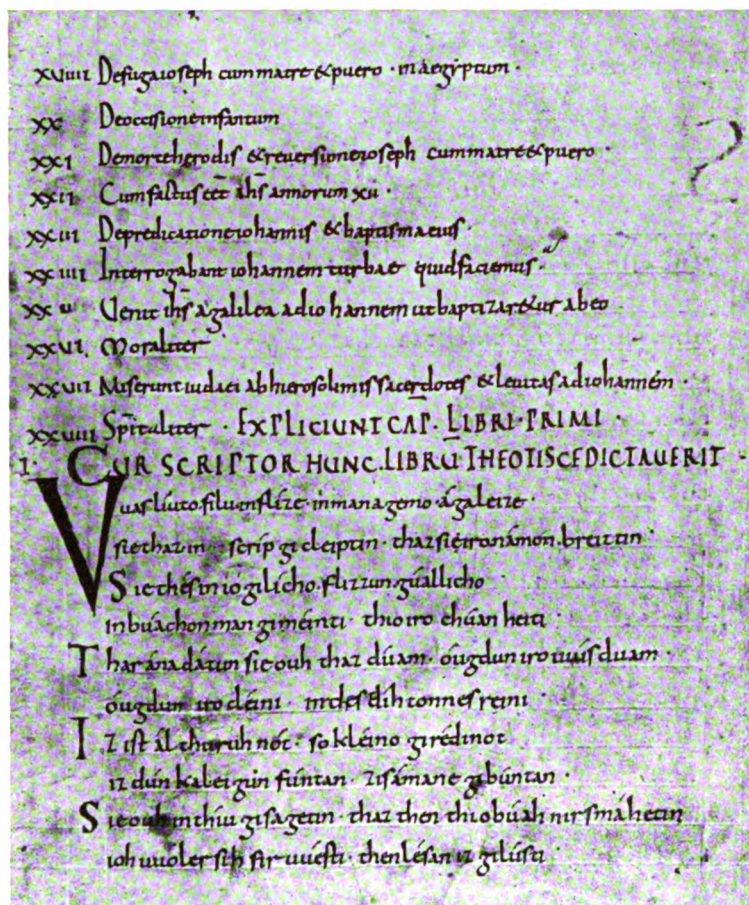 XVIIII Defuga ioseph cum matre & puero · in aegyptum ·
XX De occisione infantum
XXI De morte herodis & reuersione ioseph cum matre & puero ·
XXII Cum factus eēt ihs̄ annorum xii ·
XXIII De predicatione iohannis & baptisma eius ·
XXIIII Interrogabant iohannem turbae quid faciemus ·
XXV Uenit ihs̄ a galilea ad iohannem ut baptizar&ur ab eo
XXVI. Moraliter
XXVII Miserunt iudaei ab hierosolimis sacerdotes & leuitas ad iohannem ·
XXVIII Spiritaliter · EXPLICIUNT CAP̄. LIBRI · PRIMI ·
I · CUR SCRIPTOR HUNC LIBRŪ THEOTISCE DICTAUERIT
Vuas líuto filu in flíze · in managemo ágaleize ·
sie thaz in scrip gicleiptin · thaz sie iro námon breittin ·
Sie thés in io gilícho · flizzun gúallicho
in búachon man giméinti · thio iro chúanheiti ·
Thar ána dátun sie ouh thaz dúam · óugdun iro uuísduam ·
óugdun iro cléini · in thes díhtonnes reini ·
Iz ist ál thuruh nót · so kléino girédinot
iz dúnkal eigun fúntan · zisámane gibúntan ·
Sie ouh in thiu gisagetin · thaz then thio búah nirsmáhetin
ioh uuol er sih firuuésti · then lésan iz gilústi ·